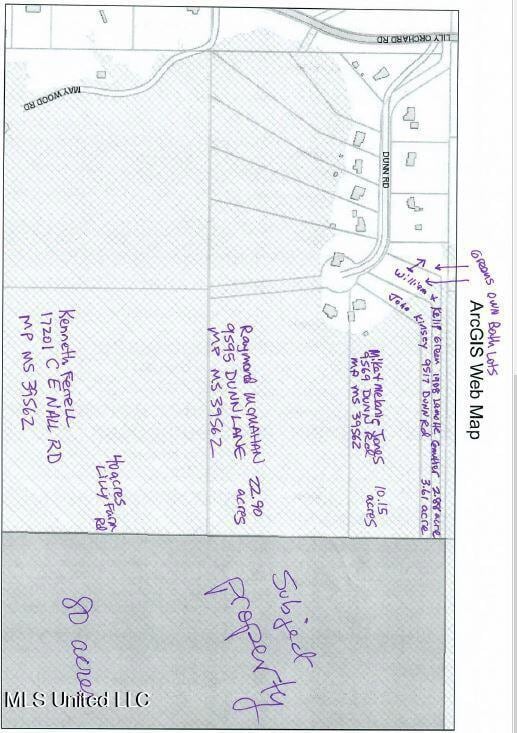 ArcGIS Web Map
LILY ORCHARD RD
DUNN RD
MAYWOOD RD
Greens OWN Both Lots
William + Kelly Green 2.88 acre
John Kinsey 9517 DUNN Rd 3.61 acre
Mika + Melanie Jones 10.15
9569 DUNN Rd acres
MP MS 39562
Raymond McMAHAN 22.90
9595 DUNN LANE acres
MP MS 39562
Kenneth Ferrell
17201 C E NALL RD
MP MS 39562
40 acres
Lilly Farm
Rd
Subject
property
80 acres
MLS United LLC